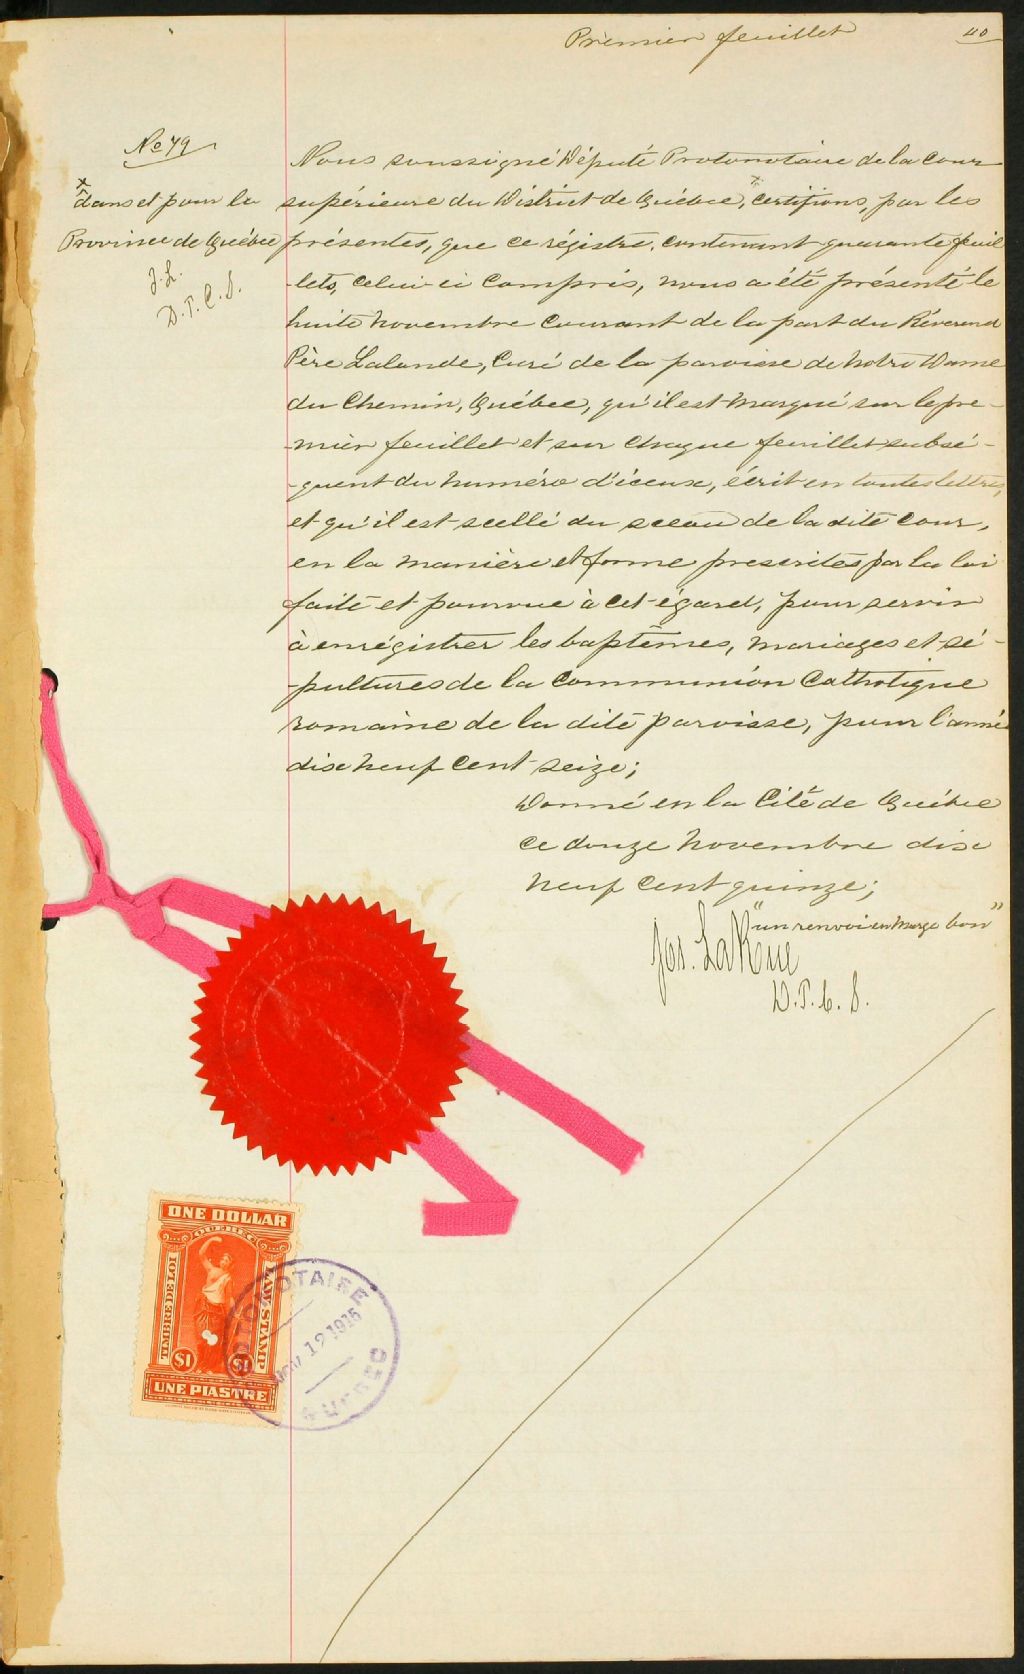 Premier feuillet
40
No 79
x dans et pour la
Province de Québec
J. L.
D. P. C. S.
Nous soussigné Député Protonotaire de la Cour
supérieure du District de Québec, x certifions, par les
présentes, que ce régistre, contenant quarante feuil
-lets, celui-ci compris, nous a été présenté le
huite novembre courant de la part du Révérend
Père Lalande, Curé de la paroisse de Notre Dame
du Chemin, Québec, qu'il est marqué sur le pre-
-mier feuillet et sur chaque feuillet subsé-
-quent du numéro d'iceux, écrit en toutes lettres,
et qu'il est scellé du sceau de la dite Cour,
en la manière et forme prescrites par la loi
faite et pourvue à cet égard, pour servir
à enrégistrer les baptêmes, mariages et sé-
-pultures de la Communion Catholique
romaine de la dite paroisse, pour l'année
dix neuf cent seize;
Donné en la Cité de Québec
ce douze novembre dix
neuf cent quinze;
"un renvoi en marge bon"
Jos. LaRue
D. P. C. S.
ONE DOLLAR
QUEBEC
TIMBRE DE LOI
LAW STAMP
$1
$1
UNE PIASTRE
PROTONOTAIRE
NOV 12 1915
QUEBEC